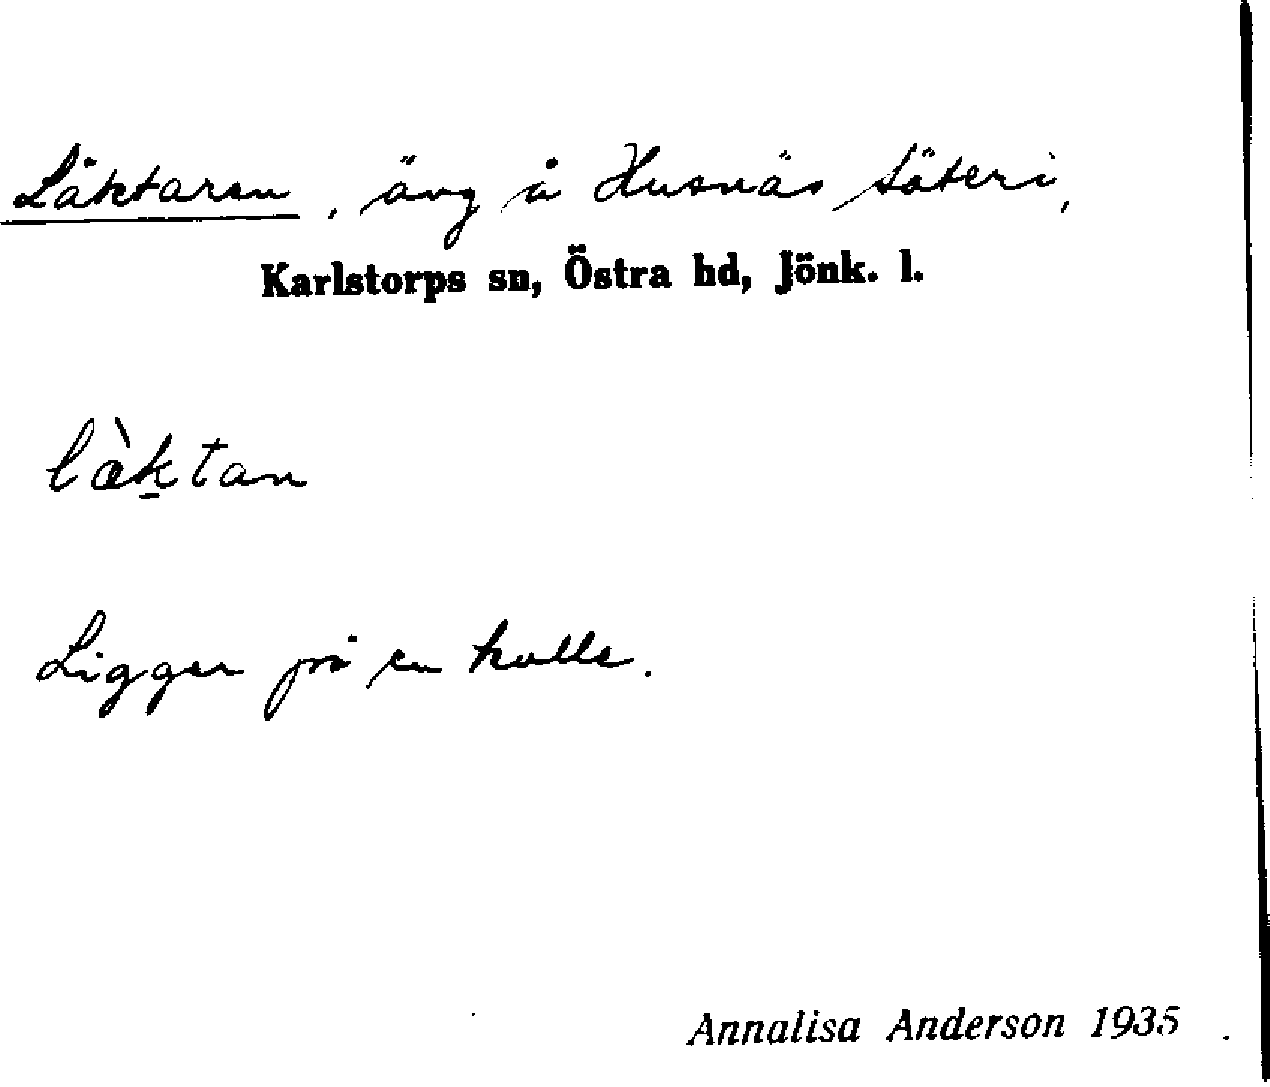 Läktaren, äng å Husnäs säteri,
Karlstorps sn, Östra hd, Jönk. l.
læ̀k̠tan
Ligger på en kulle.
Annalisa Anderson 1935